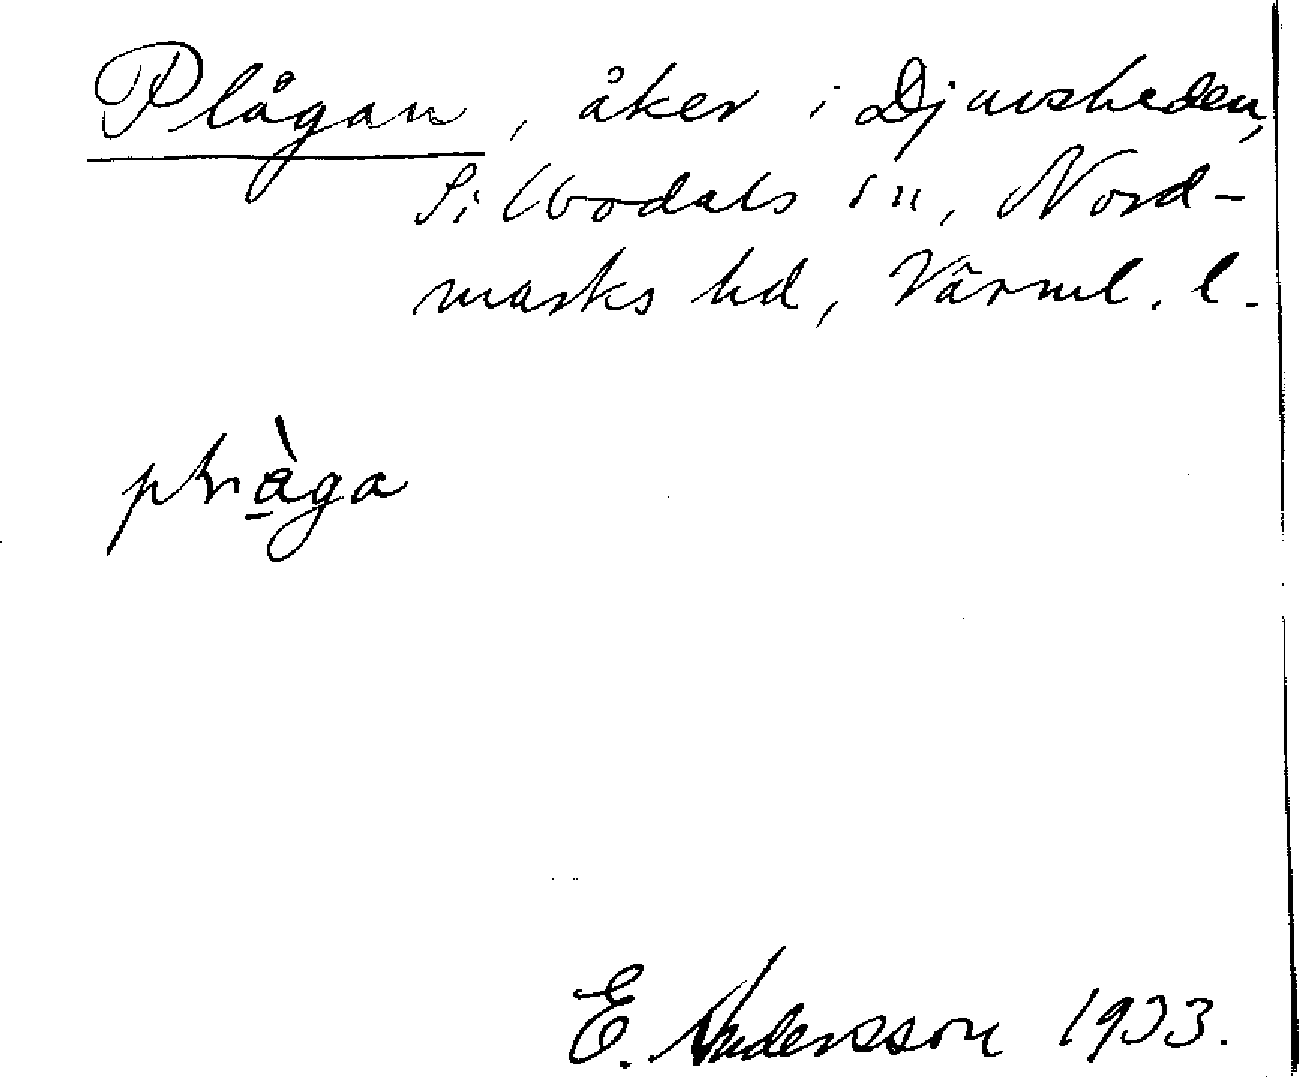 Plågan, åker i Djuvsheden,
Silbodals sn, Nord-
marks hd, Värml. l.
E. Andersson 1933.